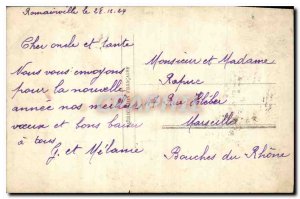 Romainville le 28.12.29
Cher oncle et tante
Nous vous envoyons
pour la nouvelle
année nos meilleurs
vœux et bons baisers
à tous
G. et Mélanie
Monsieur et Madame
Rue Kléber
Marseille
Bouches du Rhône